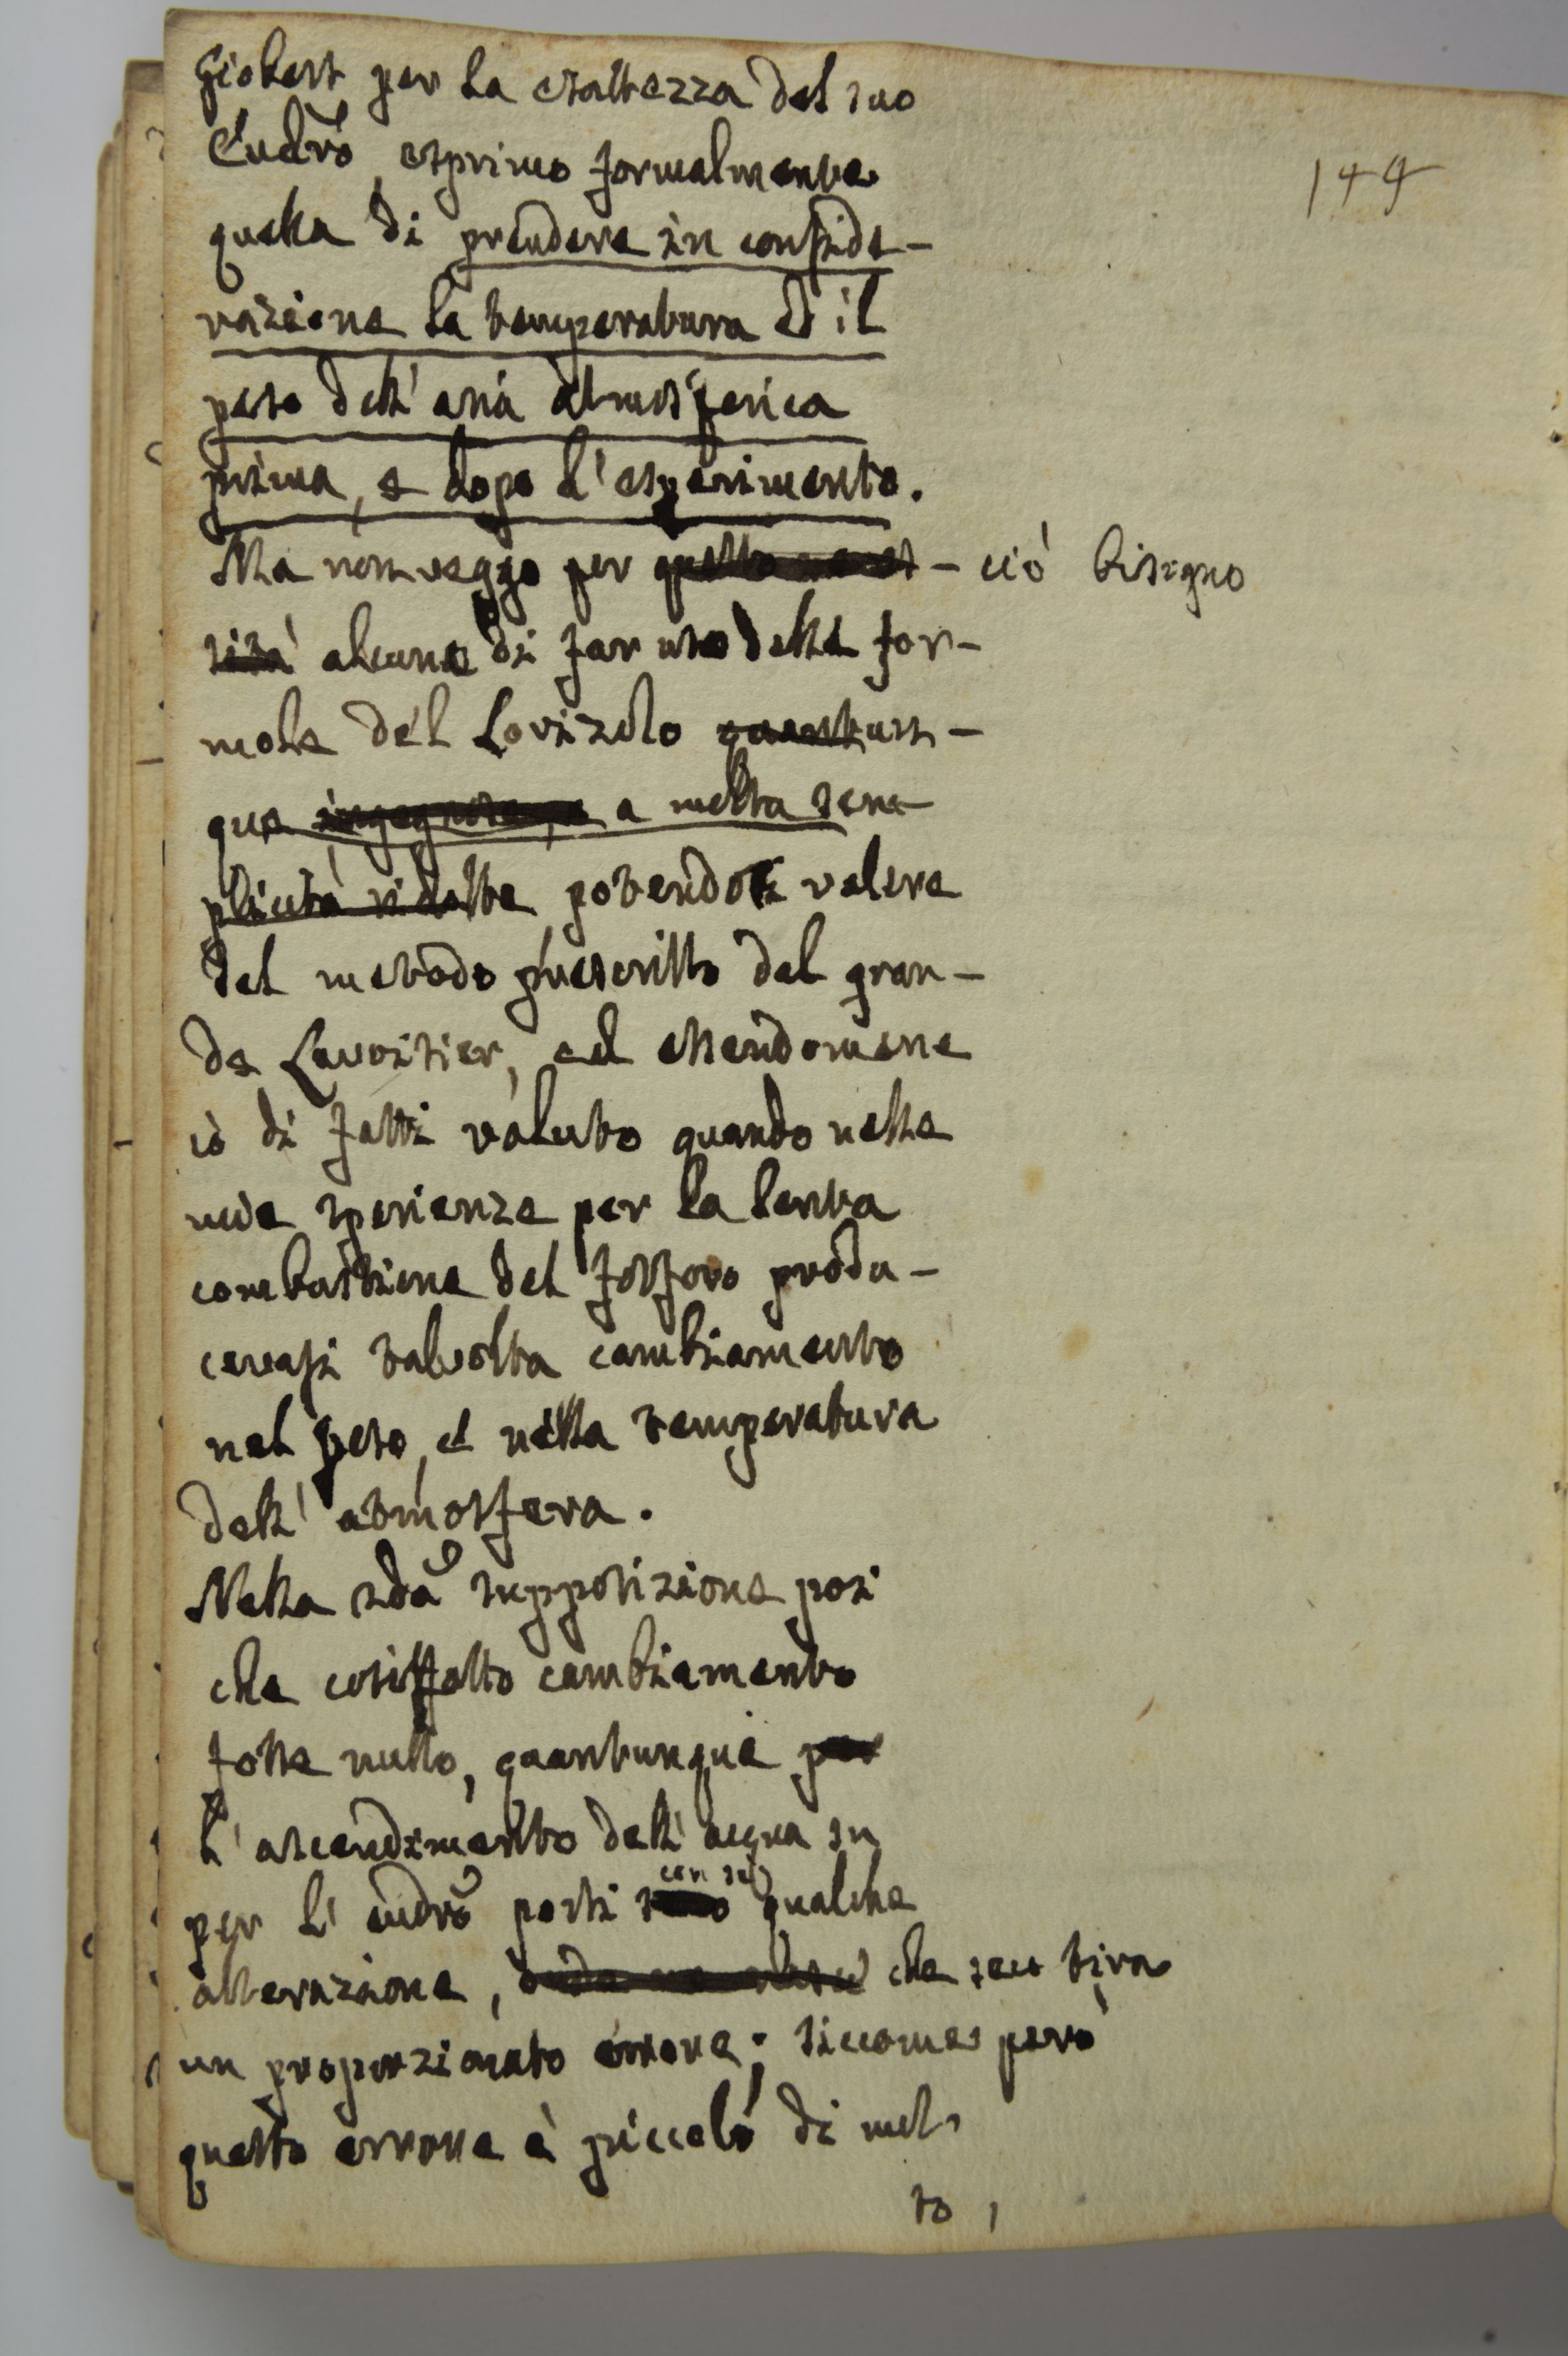 Giobert per la esattezza del suo
Eudr̃o, esprimo formalmente
quella di prendere in conside-
razione la temperatura ed il
peso dell'aria atmosferica
prima, e dopo l'esperimento.
144
Ma non veggo per quello neces- ciò bisogno
sità alcuno di far uso delle for-
mole del Lovizzolo quantun-
que ingegnose, e a molta sem-
plicità ridotte potendosi valere
del metodo prescritto dal gran-
de Lavoisier, ed essendomene
iò di fatti valuto quando nelle
mie sperienze per la lenta
combustione del fosforo produ-
cevasi talvolta cambiamento
nel peso, e nella temperatura
dell'atmosfera.
Nella sd̃a supposizione posi
che cosiffatto cambiamento
fosse nullo, quantunque per
l'ascendimento dell'acqua su
per l'eudr̃o porti con sè qualche
alterazione, che seco tira
un proporzionato errore; siccome però
questo errore è piccolo di mol-
to,